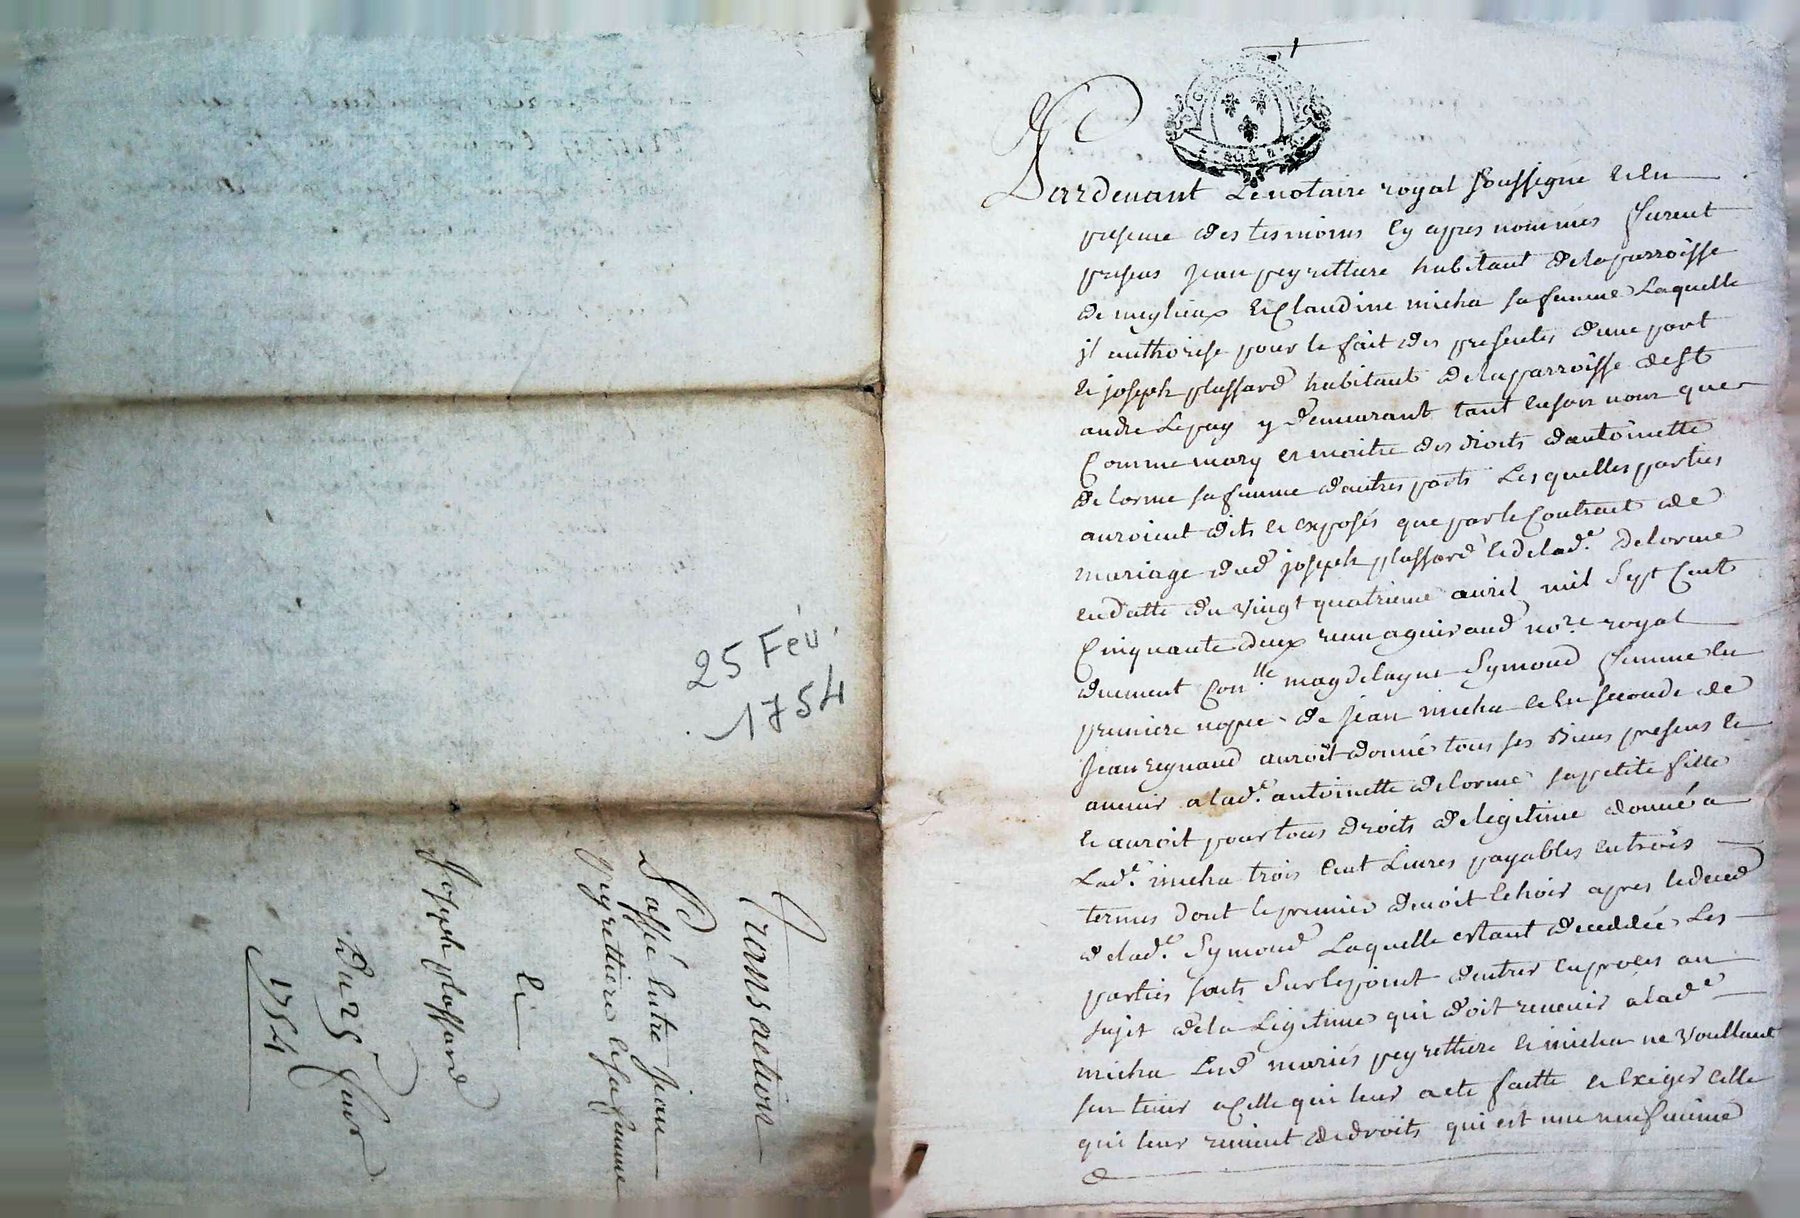 25 Fév.
1754
Transaction
Passé entre jean
peyrettiere et sa femme
Et
Joseph plassard
Du 25 feur
1754
Pardevant Le notaire royal soussigné et en
presence des tesmoins cy apres nommés furent
presens jean peyrettiere habitant de la parroisse
de meylieux et Claudine micha sa femme Laquelle
jl authorise pour le fait des presentes d'une part
et joseph plassard habitant de la parroisse de st
andre Le puy y demeurant tant en son nom que
Comme mary et maitre des droits dantoinette
delorme sa femme d'autres parts Lesquelles parties
auroient dits et exposés que par le Contract de
mariage dud joseph plassard et de lad.e delorme
en datte du vingt quatrieme avril mil sept Cent
Cinquante deux receu no.re royal
duement Con.lle magdelayne Symond femme en
premiere nopce de jean micha et en seconde de
jean reynaud auroit donné tous ses Biens presens et
avenir a lad.e antoinette delorme sa petite fille
et auroit pour tous droits de legitime donné a
Lad.e micha trois Cent Livres payables en trois
termes dont le premier devoit echoir apres le deced
de lad.e Symond Laquelle estant decedée Les
parties sont Sur le point d'entrer en proces au
sujet de la Legitime qui doit revenir a lad.e
micha Lesd mariés peyrettiere et micha ne voullant
sen tenir a Celle qui leur a ete faitte et exiger celle
qui leur revient de droits qui est une neufvieme